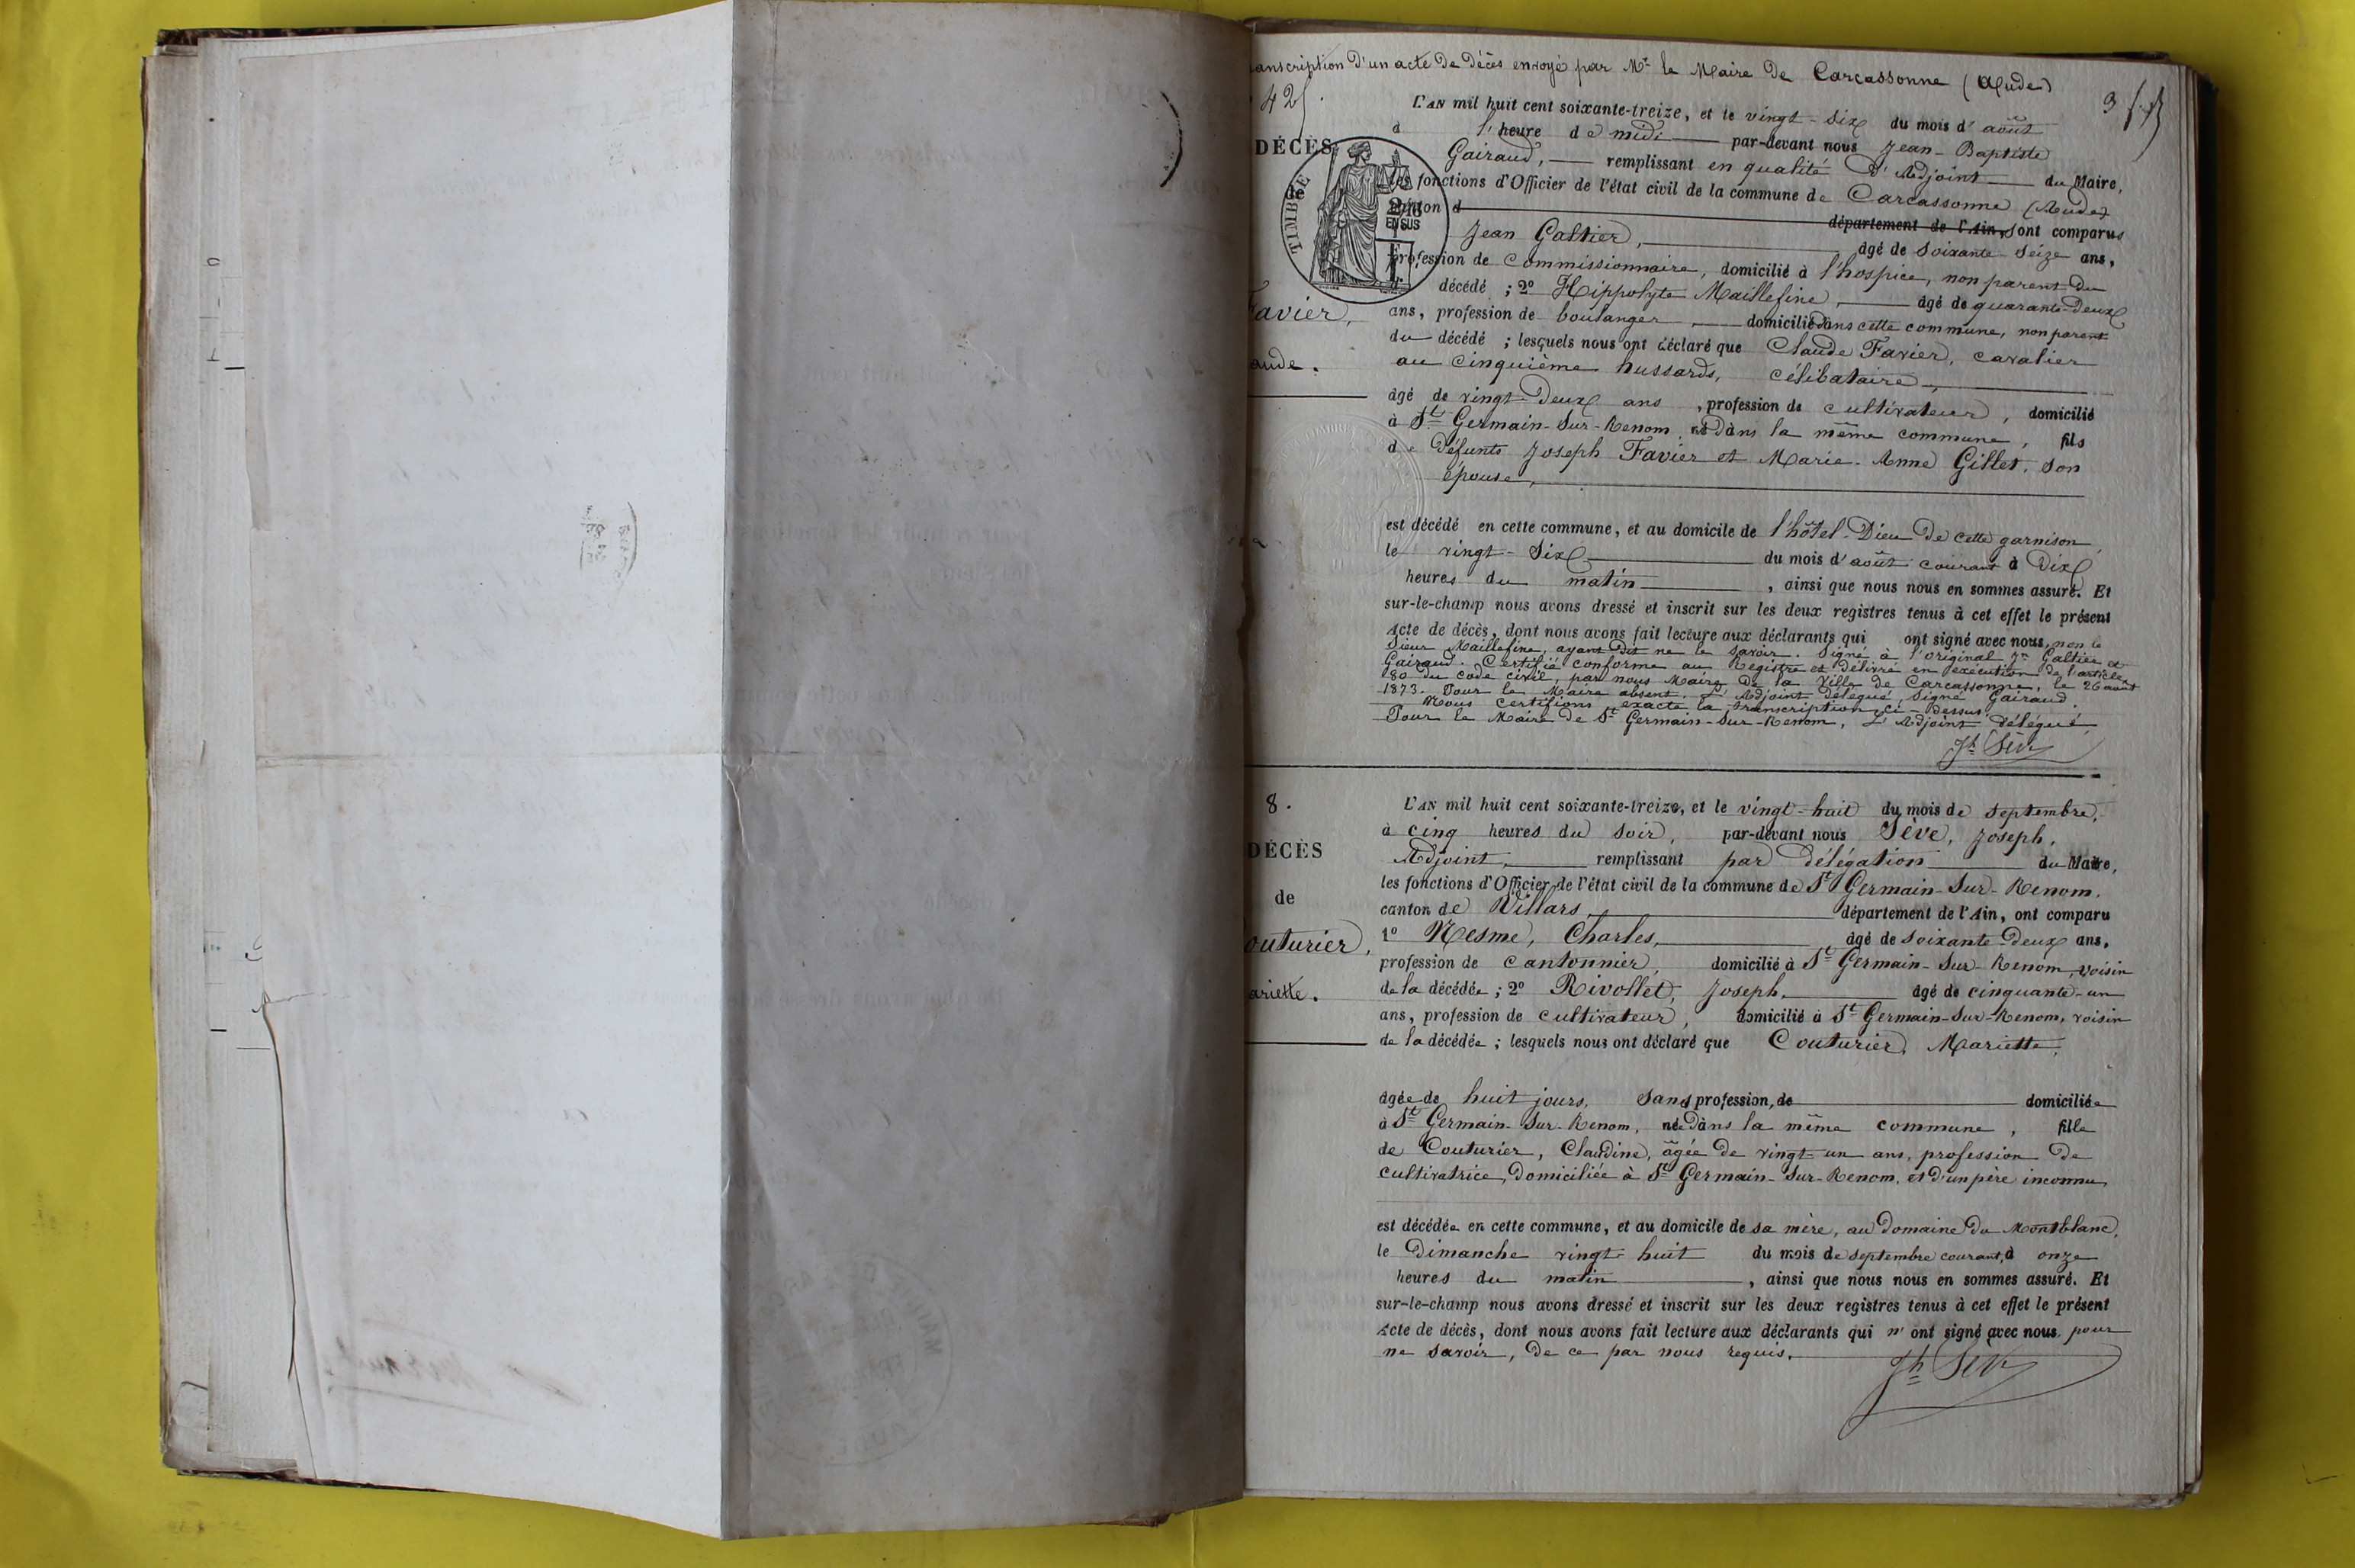 anscription d'un acte de décès envoyé par Mr le Maire de Carcassonne (Aude)
42
3
L'AN mil huit cent soixante-treize, et le vingt-six du mois d'août
à l'heure de midi par-devant nous Jean-Baptiste
DÉCÈS
Gairaud, remplissant en qualité d'Adjoint du Maire,
de
les fonctions d'Officier de l'état civil de la commune de Carcassonne (Aude)
TIMBRE
EN SUS
canton d département de l'Ain, sont comparus
Jean Galtier, âgé de soixante seize ans,
profession de commissionnaire, domicilié à l'hospice, non parent du
décédé ; 2º Hippolyte Maillefine, âgé de quarante-deux
avier,
ans, profession de boulanger, domicilié dans cette commune, non parent
du décédé ; lesquels nous ont déclaré que Claude Favier, cavalier
aude.
au cinquième hussards, célibataire,
âgé de vingt-deux ans, profession de cultivateur, domicilié
à St Germain-sur-Renom, né dans la même commune, fils
de défunts Joseph Favier et Marie-Anne Gillet, son
épouse,
est décédé en cette commune, et au domicile de l'hôtel-Dieu de cette garnison,
le vingt-six du mois d'août courant à dix
heures du matin, ainsi que nous nous en sommes assuré. Et
sur-le-champ nous avons dressé et inscrit sur les deux registres tenus à cet effet le présent
Acte de décès, dont nous avons fait lecture aux déclarants qui ont signé avec nous, non le
Sieur Maillefine, ayant dit ne le savoir. Signé à l'original Jn Galtier et
Gairaud. Certifié conforme au Registre et délivré en exécution de l'article
80 du code civil, par nous Maire de la Ville de Carcassonne, le 26 août
1873. Pour le Maire absent. L'Adjoint délégué signé Gairaud.
Nous certifions exacte la transcription ci-dessus.
Pour le Maire de St Germain-sur-Renom, L'Adjoint délégué,
Jh Sève
8.
L'AN mil huit cent soixante-treize, et le vingt-huit du mois de septembre,
à cinq heures du soir, par-devant nous Sève, Joseph,
DÉCÈS
Adjoint, remplissant par délégation du Maire,
les fonctions d'Officier de l'état civil de la commune de St Germain-sur-Renom,
de
canton de Villars, département de l'Ain, ont comparu
outurier,
1º Nesme, Charles, âgé de soixante-deux ans,
profession de cantonnier, domicilié à St Germain-sur-Renom, voisin
ariette.
de la décédée ; 2º Rivollet, Joseph, âgé de cinquante-un
ans, profession de cultivateur, domicilié à St Germain-sur-Renom, voisin
de la décédée ; lesquels nous ont déclaré que Couturier, Mariette,
âgée de huit jours, sans profession, de domiciliée
à St Germain-sur-Renom, née dans la même commune, fille
de Couturier, Claudine, âgée de vingt-un ans, profession de
cultivatrice, domiciliée à St Germain-sur-Renom, et d'un père inconnu,
est décédée en cette commune, et au domicile de sa mère, au domaine du Montblanc,
le Dimanche vingt-huit du mois de septembre courant, à onze
heures du matin, ainsi que nous nous en sommes assuré. Et
sur-le-champ nous avons dressé et inscrit sur les deux registres tenus à cet effet le présent
Acte de décès, dont nous avons fait lecture aux déclarants qui n'ont signé avec nous, pour
ne savoir, de ce par nous requis.
Jh Sève